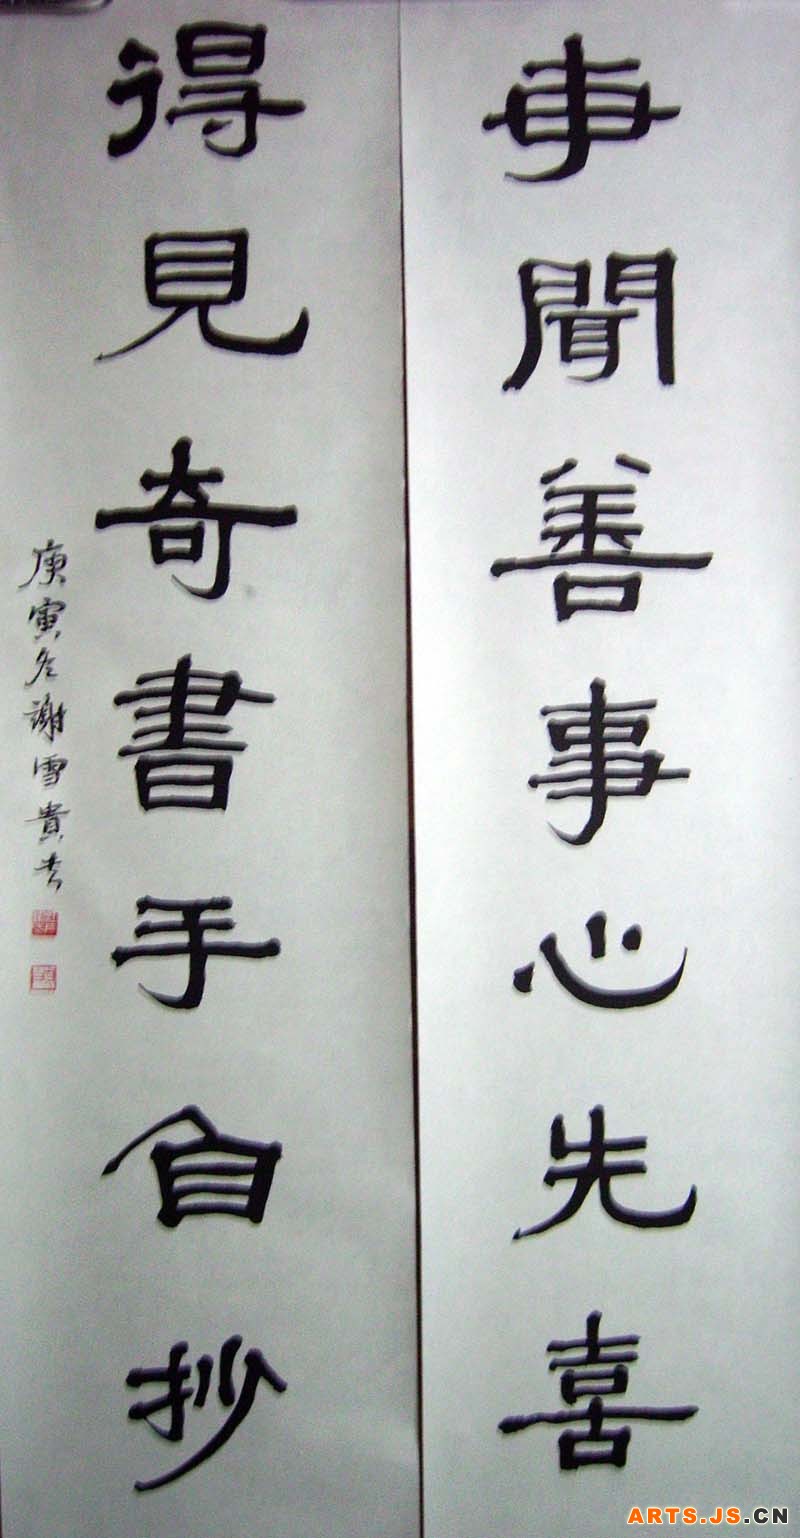 聞善事心先喜
得見奇書手自抄
庚寅冬謝雪貴书
ARTS.JS.CN